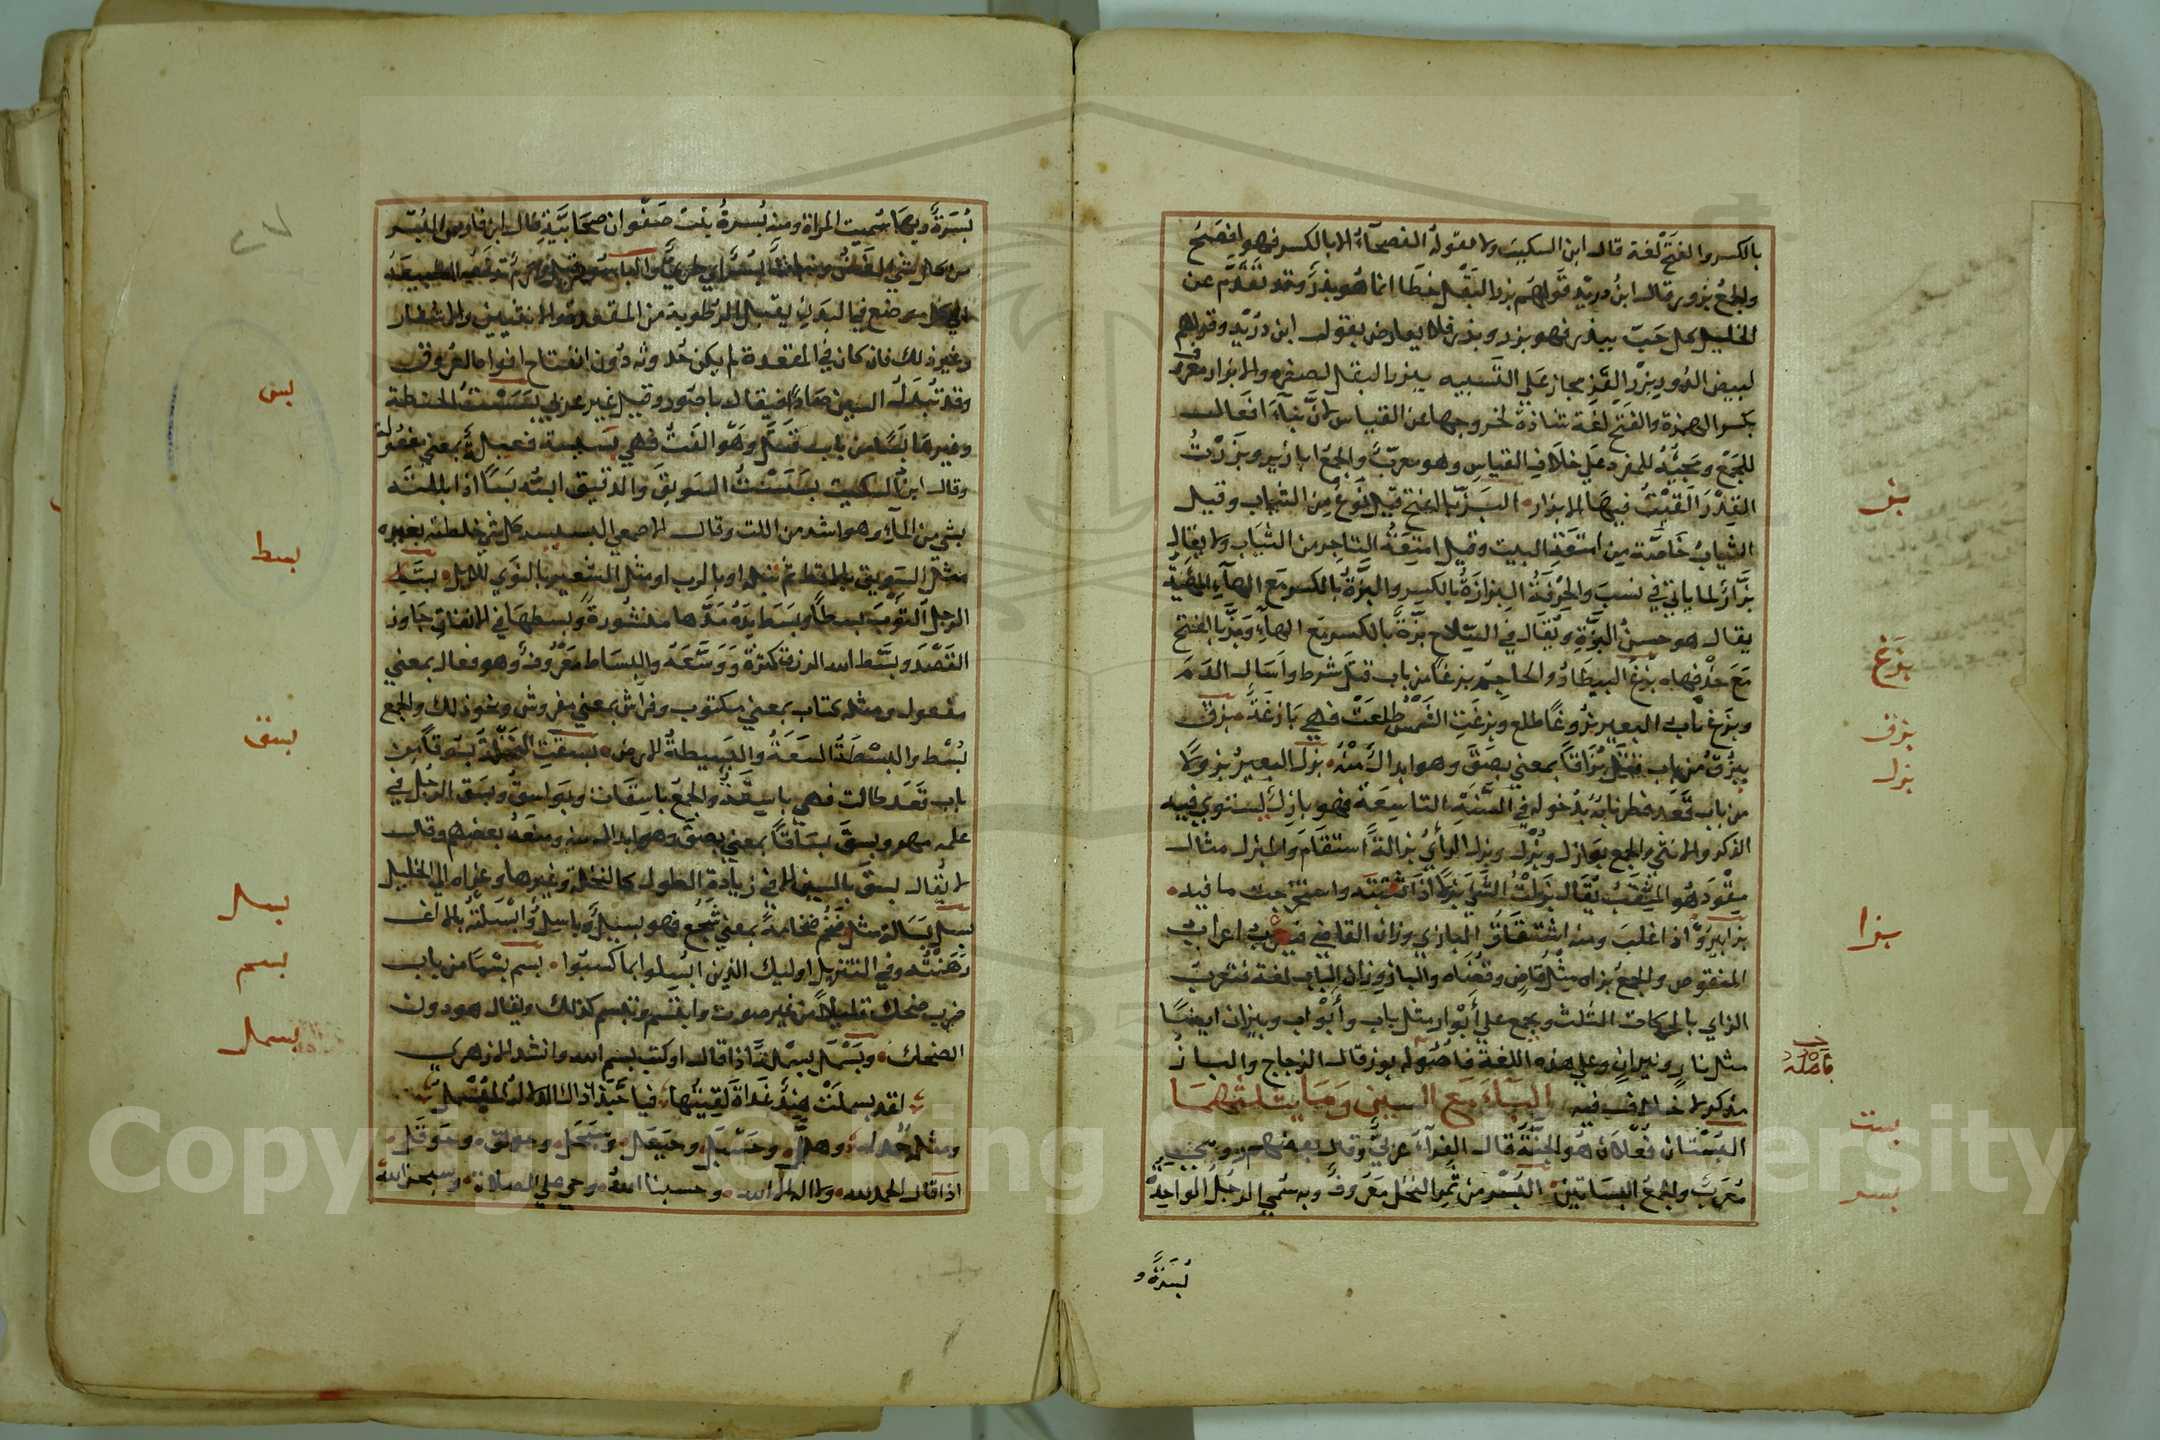 بالكسر والفتح لغة قال ابن السكيت ولا تقوله الفصحاء الا بالكسر فهو افصح
والجمع بزور قال ابن دريد قولهم بزر البقل خطأ انما هو بذر وقد تقدم عن
الخليل كل حب يبذر فهو بزر وبذر فلا يعارض بقول ابن دريد وقولهم
لبيض الدود بزر القز مجاز على التشبيه ببزر البقل لصغره والابزار معروف
بكسر الهمزة والفتح لغة شاذة لخروجها عن القياس لان بناء افعال
للجمع ومجيئه للمفرد على خلاف القياس وهو معرب والجمع ابازير وبزرت
القدر القيت فيها الابزار البز بالفتح قيل نوع من الثياب وقيل
الثياب خاصة من امتعة البيت وقيل امتعة التاجر من الثياب ولا يقال
بزاز لما ياتي في نسب والحرفة البزازة بالكسر والبزة بالكسر مع الهاء الهيئة
يقال هو حسن البزة ويقال في السلاح بزة بالكسر مع الهاء وبز بالفتح
مع حذفها بزغ البيطار والحاجم بزغا من باب قتل شرط واسال الدم
وبزغ ناب البعير بزوغا طلع وبزغت الشمس طلعت فهي بازغة بزق
يبزق من باب قتل بزاقا بمعنى بصق وهو ابدال منه بزل البعير بزولا
من باب قعد فطر نابه بدخوله في السنة التاسعة فهو بازل يستوي فيه
الذكر والانثى والجمع بوازل وبزل وبزل الرأي بزالة استقام والمبزل مثال
مقود هو المثقب يقال بزلت الشيء بزلا اذا ثقبته واستخرجت ما فيه
بزا يبزو اذا غلب ومنه اشتقاق البازي وزان القاضي فيعرب اعراب
المنقوص والجمع بزاه مثل قاض وقضاه والباز وزان الباب لغة فتعرب
الزاي بالحركات الثلث ويجمع على ابواز مثل باب وأبواب وبيزان ايضا
مثل نار ونيران وعلى هذه اللغة فأصوله بوز قال الزجاج والباز
مذكر لا خلاف فيه الباء مع السين وما يثلثهما
البستان فعلان هو الجنة قال الفراء عربي وقال بعضهم رومي
معرب والجمع البساتين البسر من ثمر النخل معروف وبه سمي الرجل الواحدة
بسرة و
بز
بزغ
بزق
بزل
بزا
بست
بسر
بسرة وبها سميت المراة ومنه بسرة بنت صفوان صحابية قال ابن فارس البسر
من كل شيء الغض ونبات بسر اي طري والباسور قيل ورم تدفعه الطبيعة
الى كل موضع في البدن يقبل الرطوبة من المقعدة والانثيين والاشفار
وغير ذلك فان كان في المقعدة لم يكن حدوثه دون انفتاح افواه العروق
وقد تبدل السين صادا فيقال باصور وقيل غير عربي بسست الحنطة
وغيرها بسا من باب قتل وهو الفت فهي بسيسة فعيلة بمعنى مفعولة
وقال ابن السكيت بسست السويق والدقيق ابسه بسا اذا بللته
بشي من الماء وهو اشد من اللت وقال الاصمعي البسيسة كل شي خلطته بغيره
مثل السويق بالاقط ثم تبله او بالرب او مثل الشعير بالنوي للابل بسط
الرجل الثوب بسطا وبسط يده مدها منشورة وبسطها في الانفاق جاوز
القصد وبسط الله الرزق كثره ووسعه والبساط معروف وهو فعال بمعنى
مفعول ومثله كتاب بمعنى مكتوب وفراش بمعنى مفروش ونحو ذلك والجمع
بسط والبسطة السعة والبسيطة الارض بسقت النخلة بسوقا من
باب قعد طالت فهي باسقة والجمع باسقات وبواسق وبسق الرجل في
علمه مهر وبسق بساقا بمعنى بصق وهو ابدال منه ومنعه بعضهم وقال
لا يقال بسق بالسين الا في زيادة الطول كالنخلة وغيرها وعزاه الى الخليل
بسل بسالة مثل ضخم ضخامة بمعنى شجع فهو بسيل وباسل وابسلته بالالف
رهنته وفي التنزيل اوليك الذين ابسلوا بما كسبوا بسم بسما من باب
ضرب ضحك قليلا من غير صوت وابتسم وتبسم كذلك ويقال هو دون
الضحك وبسمل بسملة اذا قال او كتب بسم الله وانشد الازهري
لقد بسملت هند غداة لقيتها فيا حبذا ذاك الدلال المبسمل
ومثله حمدل وهلل وحسبل وحيعل وسبحل وحولق وحوقل
اذا قال الحمد لله ولا اله الا الله وحسبنا الله وحي على الصلاة وسبحان الله
بس
بسط
بسق
بسل
بسم
بسمل